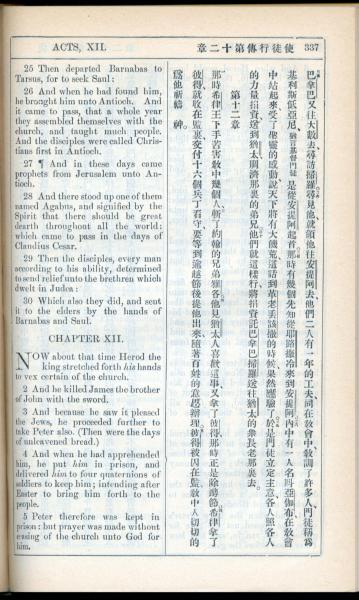 ACTS, XII.
25 Then departed Barnabas to
Tarsus, for to seek Saul:
26 And when he had found him,
he brought him unto Antioch. And
it came to pass, that a whole year
they assembled themselves with the
church, and taught much people.
And the disciples were called Chris-
tians first in Antioch.
27 ¶ And in these days came
prophets from Jerusalem unto An-
tioch.
28 And there stood up one of them
named Agabus, and signified by the
Spirit that there should be great
dearth throughout all the world:
which came to pass in the days of
Claudius Cesar.
29 Then the disciples, every man
according to his ability, determined
to send relief unto the brethren which
dwelt in Judea:
30 Which also they did, and sent
it to the elders by the hands of
Barnabas and Saul.
CHAPTER XII.
NOW about that time Herod the
king stretched forth his hands
to vex certain of the church.
2 And he killed James the brother
of John with the sword.
3 And because he saw it pleased
the Jews, he proceeded further to
take Peter also. (Then were the days
of unleavened bread.)
4 And when he had apprehended
him, he put him in prison, and
delivered him to four quaternions of
soldiers to keep him; intending after
Easter to bring him forth to the
people.
5 Peter therefore was kept in
prison: but prayer was made without
ceasing of the church unto God for
him.
使徒行傳第十二章
337
巴拿巴又往大數去尋訪掃羅尋見他就領他往安提阿去他們二人有一年的工夫同在敎會中敎訓了許多人門徒稱爲
基利斯低亞尼是從安提阿起首那時有幾個先知從耶路撒冷來到安提阿內中有一人名叫亞伽布在敎會
中站起來受了聖靈的感動說天下將有大饑荒這話到革老丟該撒的時候果然應驗了於是門徒立定主意各人照各人
的力量捐資送到猶太周濟那裏的弟兄他們就這樣行將捐資託巴拿巴掃羅送往猶太的衆長老那裏去
第十二章
那時希律王下手苦害敎中幾個人斬了約翰的兄弟雅各他見猶太人喜歡這事又拿了彼得那時正是除酵節希律拿了
彼得就收在監裏交付十六個兵丁看守要等到逾越節後提他出來隨著百姓的意思辦理彼得被囚在監敎中人切切的
爲他祈禱 神